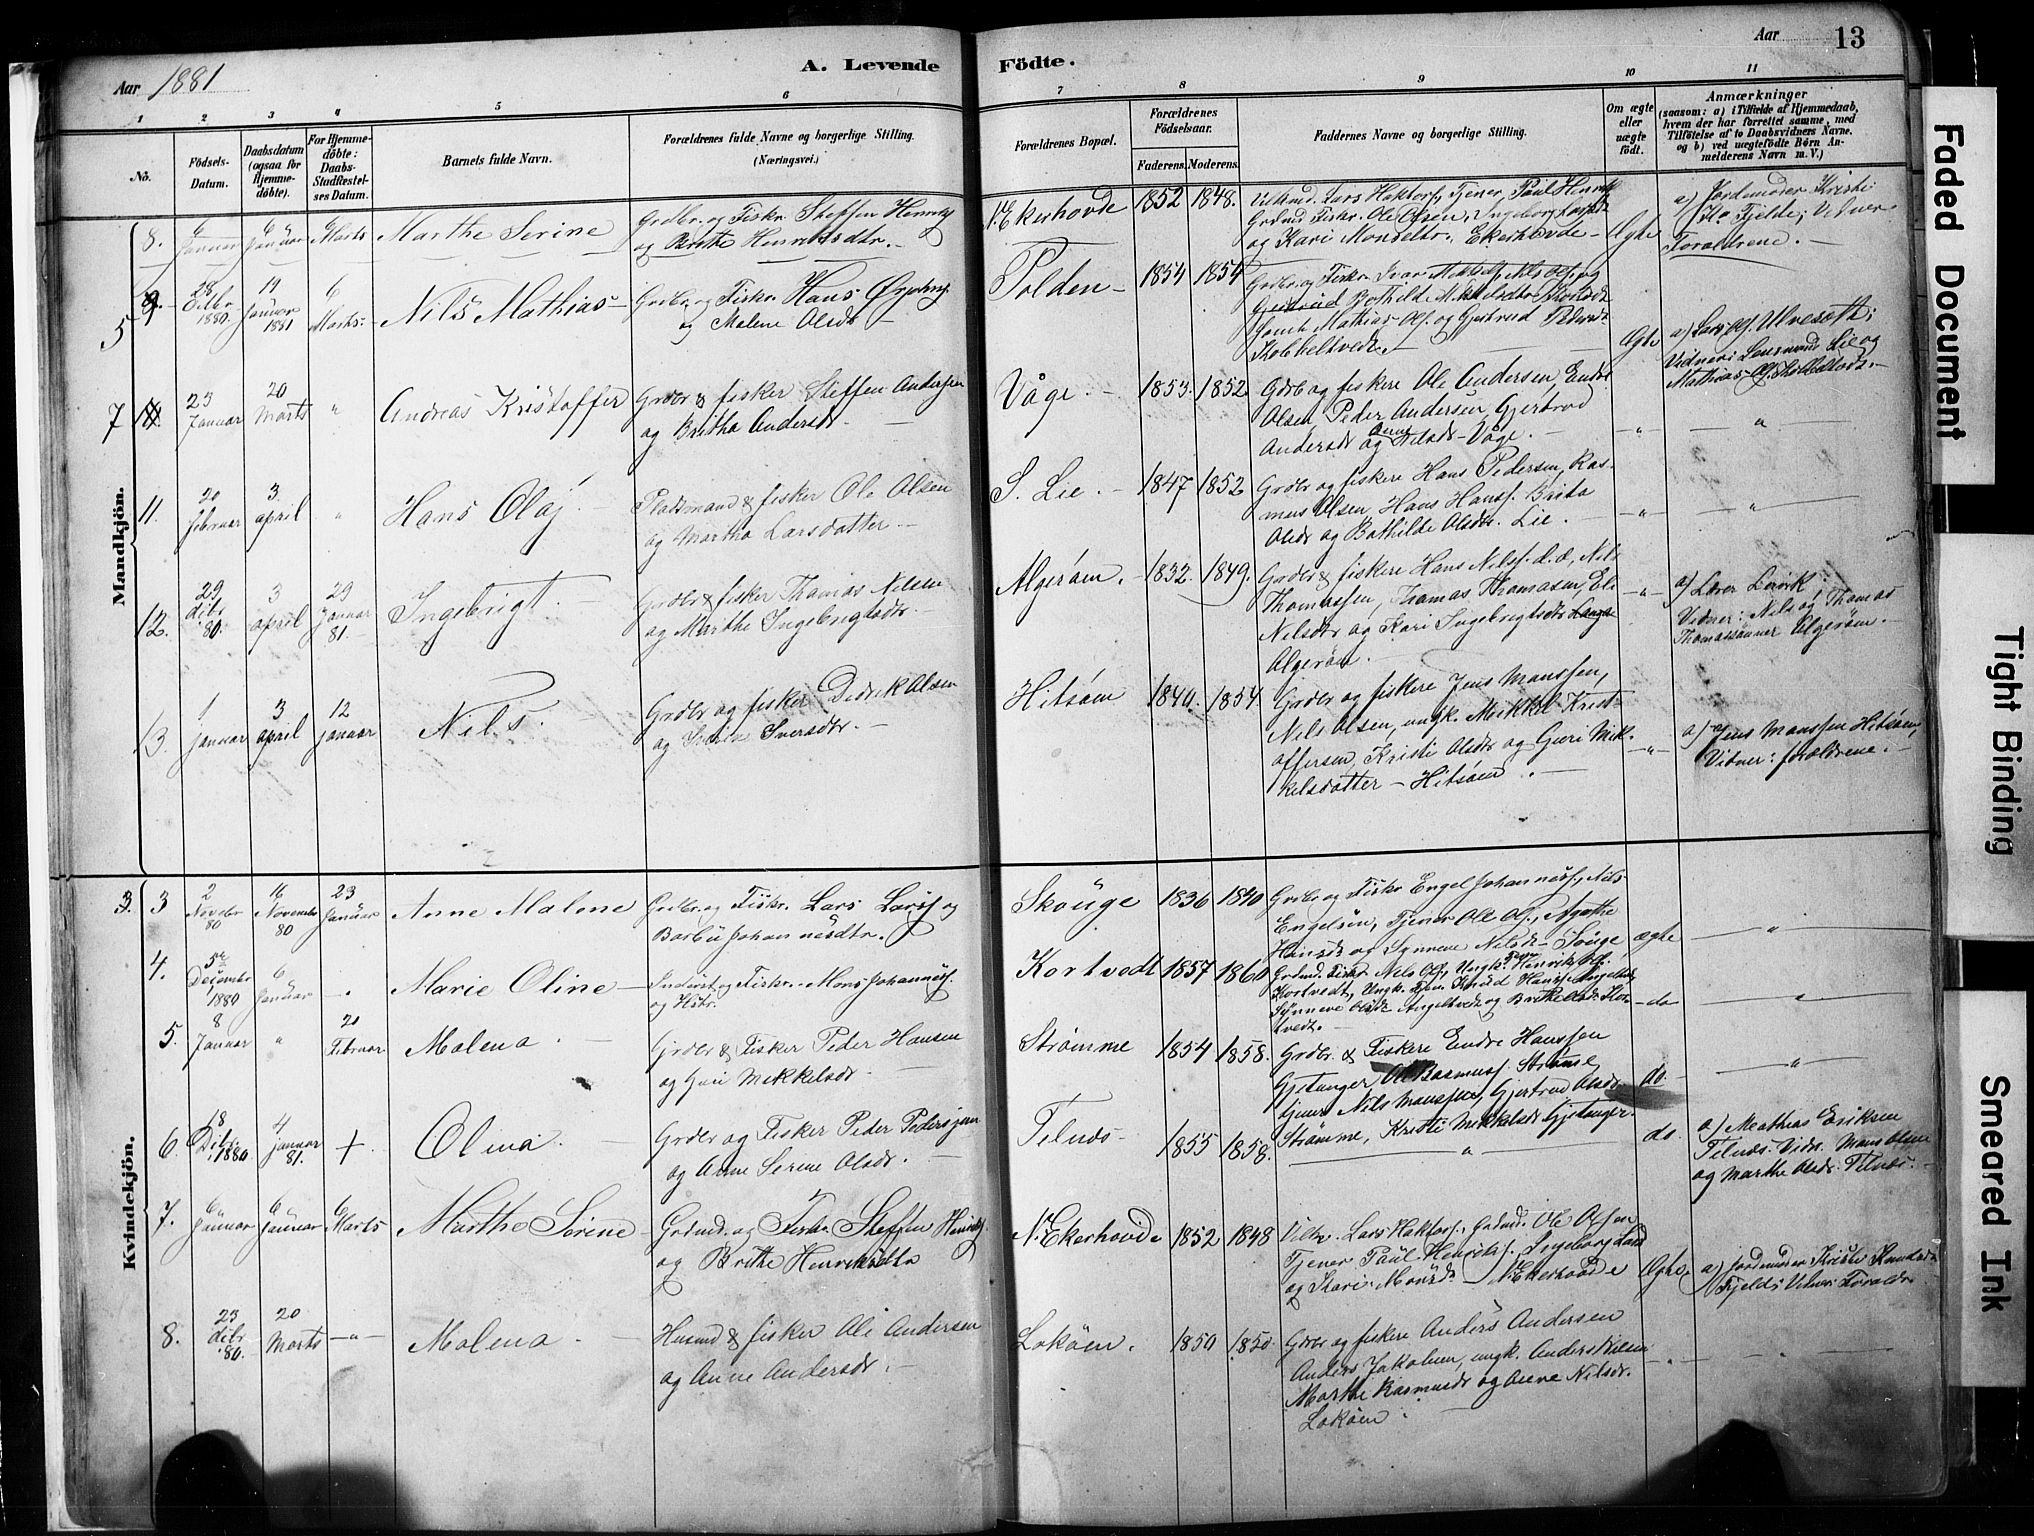 Aar 1881
A. Levende
Födte.
Aar
13
1 2 3 4 5 6
7 8 9 10 11
No.
Födsels-
Datum.
Daabsdatum
(ogsaa for
Hjemme-
döbte).
For Hjemme-
döbte:
Daabs-
Stadfæstel-
ses Datum.
Barnets fulde Navn.
Forældrenes fulde Navne og borgerlige Stilling.
(Næringsvei.)
Forældrenes Bopæl.
Forældrenes
Födselsaar.
Faderens. Moderens.
Faddernes Navne og borgerlige Stilling.
Om ægte
eller
uægte
födt.
Anmærkninger
(saasom: a) i Tilfælde af Hjemmedaab,
hvem der har forrettet samme, med
Tilföielse af to Daabsvidners Navne,
og b) ved uægtefödte Börn An-
melderens Navn m. V.)
Mandkjön.
8. 6 Januar 6 Januar 6 Marts Marthe Serine
Grdbr. og Fiskr. Steffen
og Brithe Henriksdtr.
N. Ekerhovde 1852 1848.
Grdmd. Fiskr. Ole Olsen, Ingeborg
og Kari Monsdtr. Ekerhovde Ægte
a) Jordemoder Kristi
Fjelde; Vidner
Foraldrene.
5 9 28 Dcbr 1880. 19 Januar 1881 6 Marts Nils Mathias
Grdbr. og Fiskr. Hans
og Malene Olsdr
Tolden 1854 1854
Grdbr. og Fiskr. Ivar
Gjertrud Bothilde
Samt Mathias Ols. og Gjertrud
Kobbeltvedt. Ægte
a) Lars Ols. Ulvesæth;
Vidner: Lensmand Lie og
Mathias
7 23 Januar 20 Marts " Andreas Kristoffer
Grdbr & fisker Steffen Andersen
og Britha Andersdr
Våge. 1853. 1852
Gdbr og fiskere Ole Andersen, Endre
Olsen, Peder Andersen, Gjertrud
Andersdr og Anne Nilsdr Våge. " "
11. 20 februar 3 april " Hans Olaf
Pladsmand & fisker Ole Olsen
og Martha Larsdatter
S. Lie. 1847 1852
Grdbr og fiskere Hans Pedersen, Ras-
mus Olsen, Hans Hansf. Brita
Olsdr og Bothilde Olsdr. Lie. " "
12. 29 dcbr 80. 3 april 29 Januar 81. Ingebrigt.
Grdbr & fisker Thomas Nilsen
og Marthe Ingebrigtsdr
Algerøen. 1832. 1849.
Grdbr & fiskere Hans Nilsf. d. æ, Nils
Thomassen, Thomas Thomasen, Eli
Nilsdtr og Kari Ingebrigtsdtr
Algerøen. "
a) Lærer Lervik
Vidner: Nils og Thomas
Thomassønner Algerøen.
13. 1 januar 3 april 12 januar Nils.
Grdbr og fisker Didrik Olsen
og Iversdtr.
Hitsøen 1840. 1854.
Grdbr og fiskere Jens Monssen,
Nils Olsen, ungk. Mikkel Krist-
offersen, Kristi Olsdr og Guri Mik-
kelsdatter Hitsøen "
a) Jens Monssen Hitsøen,
Vidner: forældrene.
Kvindekjön.
3. 3 2 Novebr 80 16 Novembr 80 23 Januar Anne Malene
Grdbr. og Fiskr. Lars Larsf og
Barbü Johannesdtr.
Skouge 1836 1840
Grdbr og Fiskr Engel Johannesf, Nils
Engelsen, Tjener Ole Ols., Agathe
Hansdr og Synneve Nilsdr Souge ægte "
4. 5te Decembr 1880 6 Januar Marie Oline
Inderst og Fiskr. Mons Johannesf.
og Hstr.
Kortvedt 1857 1860
Grdmd. Fiskr. Nils Ols., Ungk.
Kortvedt, Ungk. Knud Hansf Angeltvedt
Synneve Olsdr Angeltvedt og
tvedt. do "
5. 8 Januar " 20 Februar Malena
Grdbr & Fisker Peder Hansen
og Guri Mikkelsdr.
Strømme 1854 1858.
Grdbr. & Fiskere Endre Hanssen
Gjetanger, Ole Rasmusf Strømme
Nils Monssen, Gjertrud Olsdr
Strømme, Kristi Mikkelsdr Gjetanger. do. "
6. 18 Dcbr. 1880 4 januar 81. + Olina
Grdbr og Fisker Peder Pedersen
og Anne Serine Olsdr.
Telnæs 1855 1858. " do.
a) Mathias Eriksen
Telnæs. Vidr. Mons Olsen
og Marthe Olsdr. Telnæs.
7. 6 Januar 6 Januar 6 Marts Marthe Serine
Grdmd. og Fiskr. Steffen
og Brithe Henriksdtr
N. Ekerhovde 1852 1848
Lars Haktorf., Grdmd. Ole Olsen
Tjener Paul Henriksf, Ingeborg
og Kari Monsdr N. Ekerhovde Ægte
a) Jordemoder Kristi
Fjeld; Vidner: Foraldr
8. 23 dcbr 80. 20 Marts " Malena
Husmd & fisker Ole Andersen
og Anne Andersdr.
Lokøen. 1850 1850.
Grdbr og fiskere Anders Andersen
Anders Jakobsen, ungk. Anders Nilsen
Marthe Rasmusdr og Anne Nilsdr.
Lokøen " "
Faded Document
Tight Binding
Smeared Ink